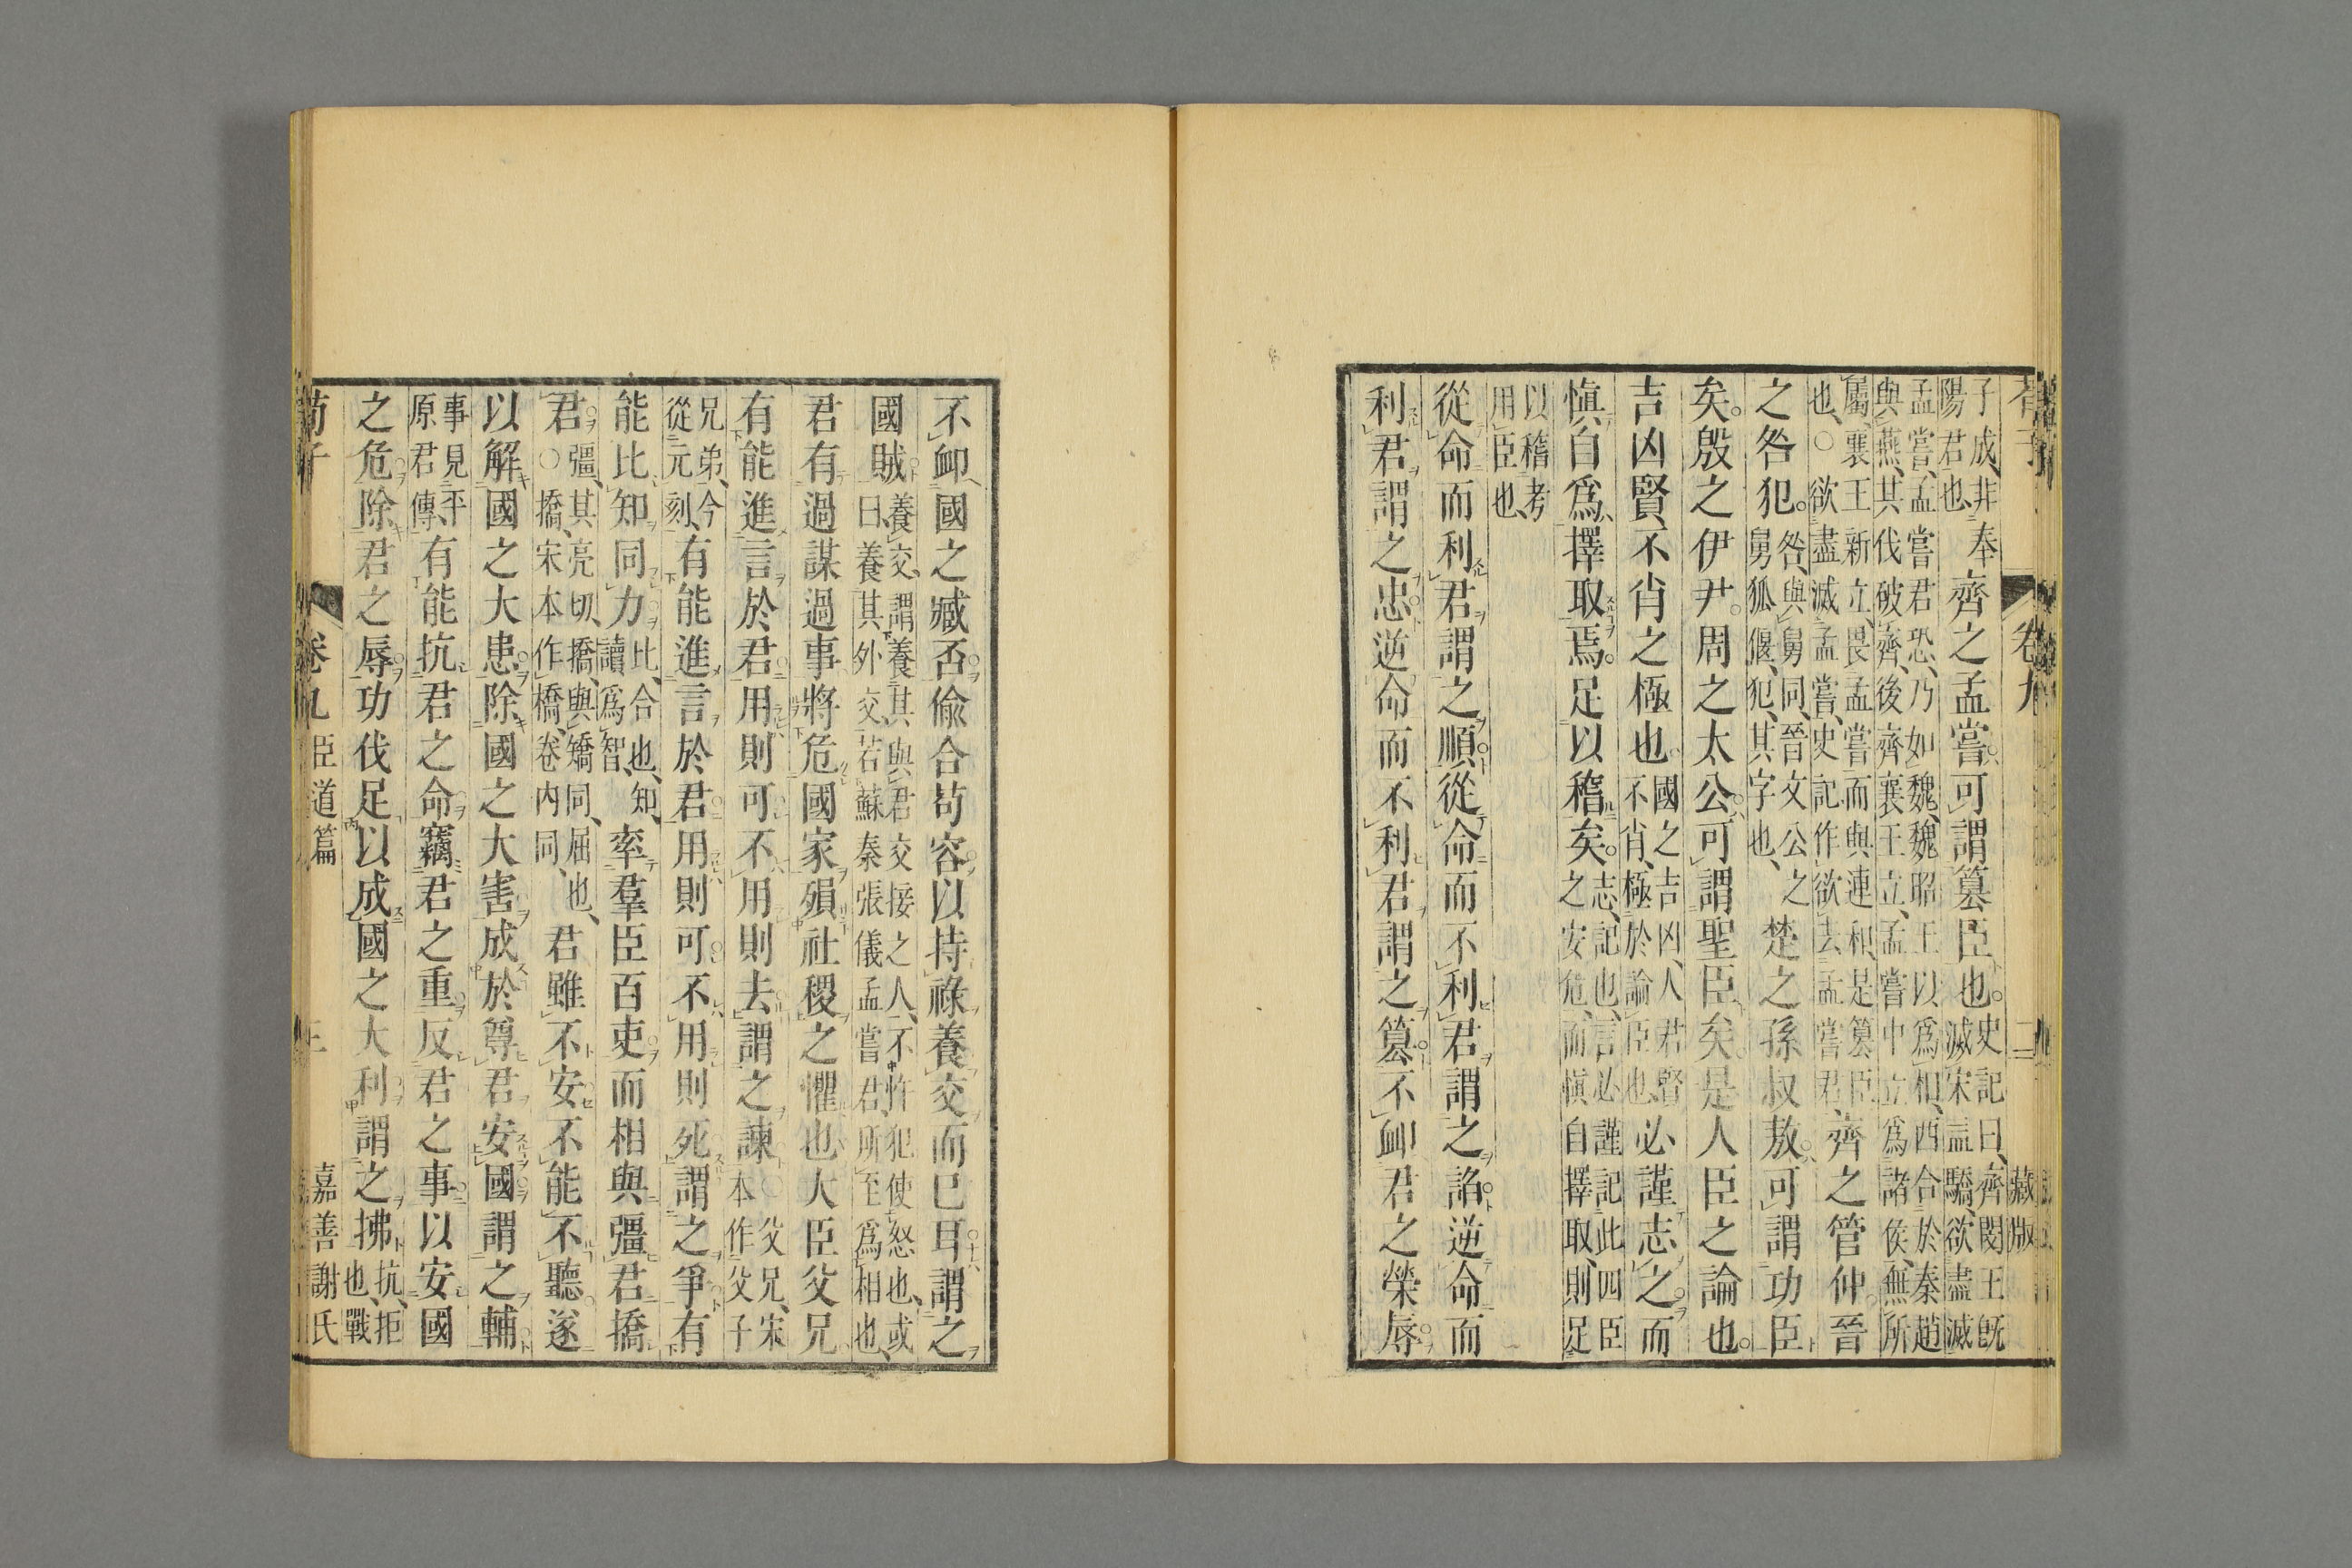 荀子 卷九 二 藏版
子成、非奉陽君也、齊之孟嘗可謂篡臣也。史記曰、齊閔王既滅宋益驕、欲盡滅
孟嘗、孟嘗君恐、乃如魏、魏昭王以爲相、西合於秦趙與燕、其伐破齊、後齊襄王立、孟嘗中立爲諸侯、無所
屬、襄王新立、畏孟嘗而與連和、是篡臣也、○欲盡滅孟嘗、史記作欲去孟嘗君、齊之管仲晉
之咎犯。咎、與舅同、晉文公之舅狐偃、犯、其字也、楚之孫叔敖可謂功臣
矣。殷之伊尹。周之太公可謂聖臣矣是人臣之論也。
吉凶賢不肖之極也國之吉凶、人君賢不肖、極於論臣也、必謹志之而
愼自爲擇取焉。足以稽矣。志、記也、言必謹記此四臣之安危、而愼自擇取、則足
以稽考用臣也、
從命而利君謂之順從命而不利君謂之諂逆命而
利君謂之忠逆命而不利君謂之篡不卹君之榮辱
不卹國之臧否偸合苟容以持祿養交而已耳謂之
國賊養交、謂養其與君交接之人、不忤犯使怒也、或曰、養其外交、若蘇秦張儀孟嘗君、所至爲相也、
君有過謀過事將危國家殞社稷之懼也大臣父兄
有能進言於君用則可不用則去謂之諫○父兄、宋本作父子
兄弟、今從元刻、有能進言於君用則可不用則死謂之爭有
能比知同力比、合也、知、讀爲智、率羣臣百吏而相與彊君撟
君彊、其亮切、撟、與矯同、屈也、○撟、宋本作橋、卷內同、君雖不安不能不聽遂
以解國之大患除國之大害成於尊君安國謂之輔
事見平原君傳、有能抗君之命竊君之重反君之事以安國
之危除君之辱功伐足以成國之大利謂之拂抗、拒也、戰
荀子 卷九 臣道篇 三 嘉善謝氏